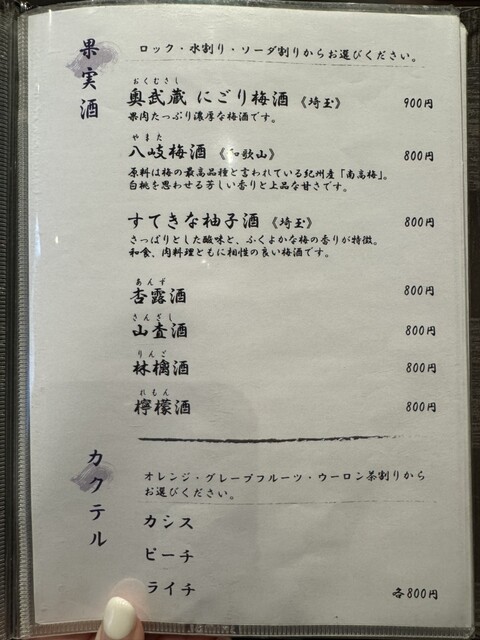 果実酒
ロック・水割り・ソーダ割りからお選びください。
おくむさし
奥武蔵 にごり梅酒 《埼玉》 900円
果肉たっぷり濃厚な梅酒です。
やまた
八岐梅酒 《和歌山》 800円
原料は梅の最高品種と言われている紀州産「南高梅」。
白桃を思わせる芳しい香りと上品な甘さです。
すてきな柚子酒 《埼玉》 800円
さっぱりとした酸味と、ふくよかな梅の香りが特徴。
和食、肉料理ともに相性の良い梅酒です。
あんず
杏露酒 800円
さんざし
山査酒 800円
りんご
林檎酒 800円
れもん
檸檬酒 800円
カクテル
オレンジ・グレープフルーツ・ウーロン茶割りから
お選びください。
カシス
ピーチ
ライチ 各800円